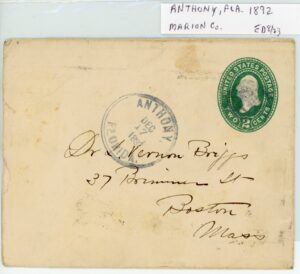 ANTHONY, FLA. 1892
MARION Co.
UNITED STATES POSTAGE
2
TWO CENTS
ANTHONY
DEC
17
FLORIDA
Dr. Vernon Briggs
37 Brimmer St
Boston
Mass